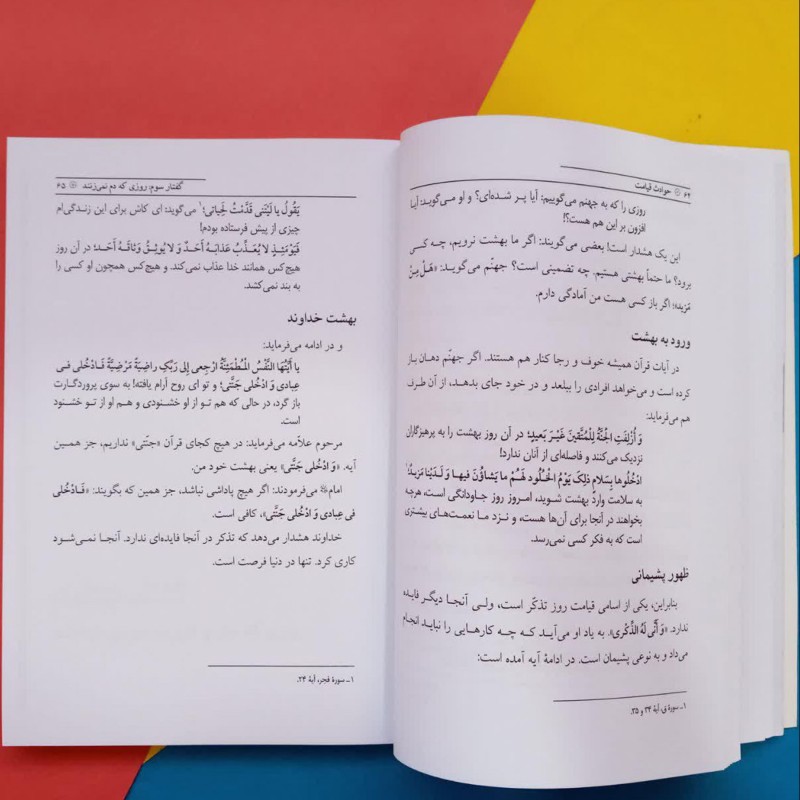 ۶۴ حوادث قیامت
روزی را که به جهنم می‌گوییم: آیا پر شده‌ای؟ و او می‌گوید: آیا
افزون بر این هم هست؟!
این یک هشدار است! بعضی می‌گویند: اگر ما بهشت نرویم، چه کسی
برود؟ ما حتماً بهشتی هستیم. چه تضمینی است؟ جهنّم می‌گوید: «هَلْ مِنْ
مَزید»؛ اگر باز کسی هست من آمادگی دارم.
ورود به بهشت
در آیات قرآن همیشه خوف و رجا کنار هم هستند. اگر جهنّم دهان باز
کرده است و می‌خواهد افرادی را ببلعد و در خود جای بدهد، از آن طرف
هم می‌فرماید:
وَ أُزْلِفَتِ الْجَنَّةُ لِلْمُتَّقینَ غَیْرَ بَعیدٍ؛ در آن روز بهشت را به پرهیزگاران
نزدیک می‌کنند و فاصله‌ای از آنان ندارد!
ادْخُلُوها بِسَلامٍ ذلِکَ یَوْمُ الْخُلُودِ لَهُمْ ما یَشاؤُنَ فیها وَ لَدَیْنا مَزیدٌ؛¹
به سلامت واردِ بهشت شوید، امروز روز جاودانگی است، هرچه
بخواهند در آنجا برای آن‌ها هست، و نزد ما نعمت‌های بیشتری
است که به فکر کسی نمی‌رسد.
ظهور پشیمانی
بنابراین، یکی از اسامی قیامت روز تذکّر است، ولی آنجا دیگر فایده
ندارد. «وَ أَنَّی لَهُ الذِّکْری». به یاد او می‌آید که چه کارهایی را نباید انجام
می‌داد و به نوعی پشیمان است. در ادامهٔ آیه آمده است:
۱ـ سورهٔ ق، آیهٔ ۳۴ و ۳۵.
گفتار سوم: روزی که دم نمی‌زنند ۶۵
یَقُولُ یا لَیْتَنی قَدَّمْتُ لِحَیاتی؛¹ می‌گوید: ای کاش برای این زندگی‌ام
چیزی از پیش فرستاده بودم!
فَیَوْمَئِذٍ لا یُعَذِّبُ عَذابَهُ أَحَدٌ وَ لا یُوثِقُ وَثاقَهُ أَحَد؛ در آن روز
هیچ‌کس همانند خدا عذاب نمی‌کند. و هیچ‌کس همچون او کسی را
به بند نمی‌کشد.
بهشت خداوند
و در ادامه می‌فرماید:
یا أَیَّتُهَا النَّفْسُ الْمُطْمَئِنَّةُ ارْجِعی إِلی رَبِّکِ راضِیَةً مَرْضِیَّةً فَادْخُلی فی
عِبادی وَ ادْخُلی جَنَّتی؛ و تو ای روح آرام یافته! به سوی پروردگارت
باز گرد، در حالی که هم تو از او خشنودی و هم او از تو خشنود
است.
مرحوم علاّمه می‌فرماید: در هیچ کجای قرآن «جنّتی» نداریم، جز همین
آیه. «وَ ادْخُلی جَنَّتی» یعنی بهشت خود من.
امام می‌فرمودند: اگر هیچ پاداشی نباشد، جز همین که بگویند: «فَادْخُلی
فی عِبادی وَ ادْخُلی جَنَّتی»، کافی است.
خداوند هشدار می‌دهد که تذکر در آنجا فایده‌ای ندارد. آنجا نمی‌شود
کاری کرد. تنها در دنیا فرصت است.
۱ـ سورهٔ فجر، آیهٔ ۲۴.